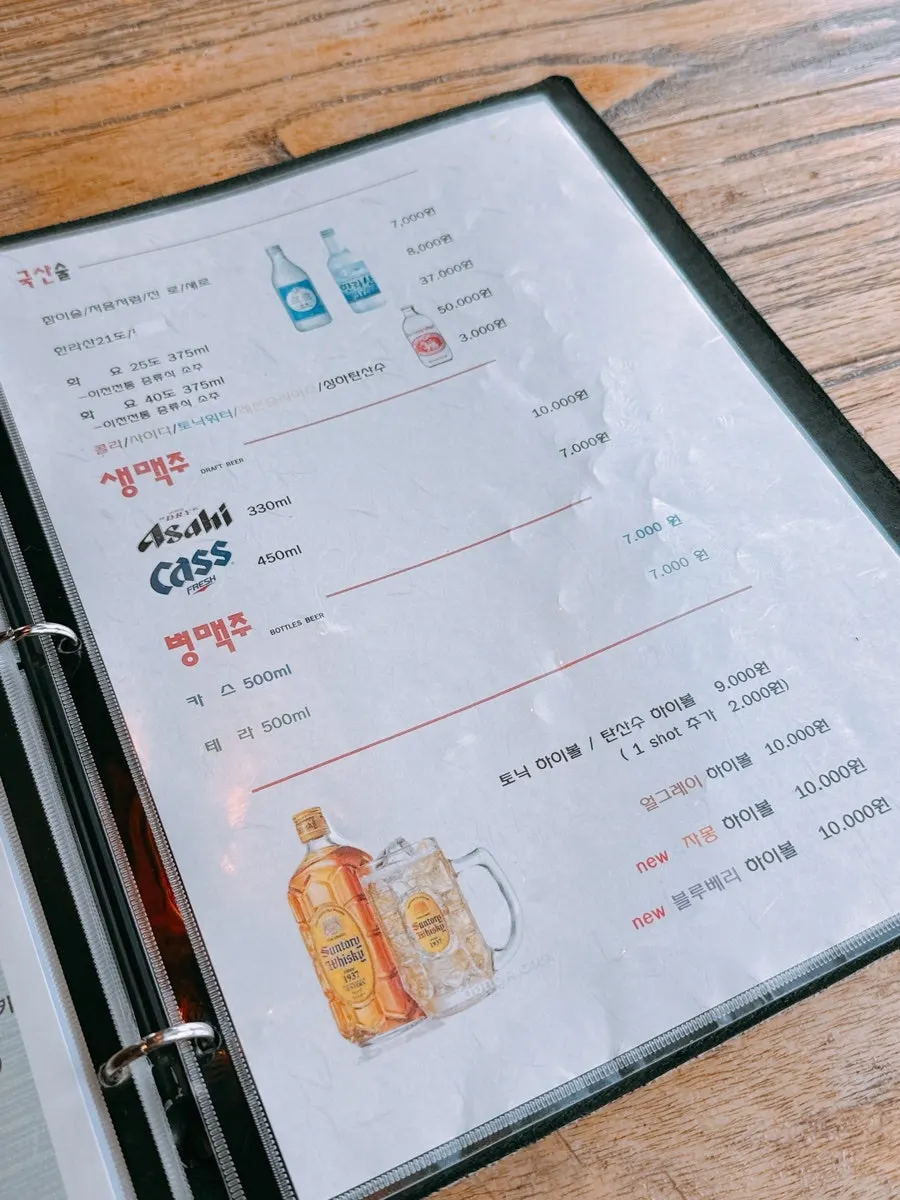 국산술
참이슬/처음처럼/진 로/새로 7,000원
한라산21도/ 8,000원
화 요 25도 375ml 37,000원
-이천전통 증류식 소주
화 요 40도 375ml 50,000원
-이천전통 증류식 소주
콜라/사이다/토닉워터/ /싱하탄산수 3,000원
생맥주 DRAFT BEER
Asahi 330ml 10,000원
Cass FRESH 450ml 7,000원
병맥주 BOTTLES BEER
카 스 500ml 7.000 원
테 라 500ml 7.000 원
토닉 하이볼 / 탄산수 하이볼 9.000원
( 1 shot 추가 2.000원)
얼그레이 하이볼 10.000원
new 자몽 하이볼 10.000원
new 블루베리 하이볼 10.000원
Suntory Whisky 1937
Suntory Whisky 1937